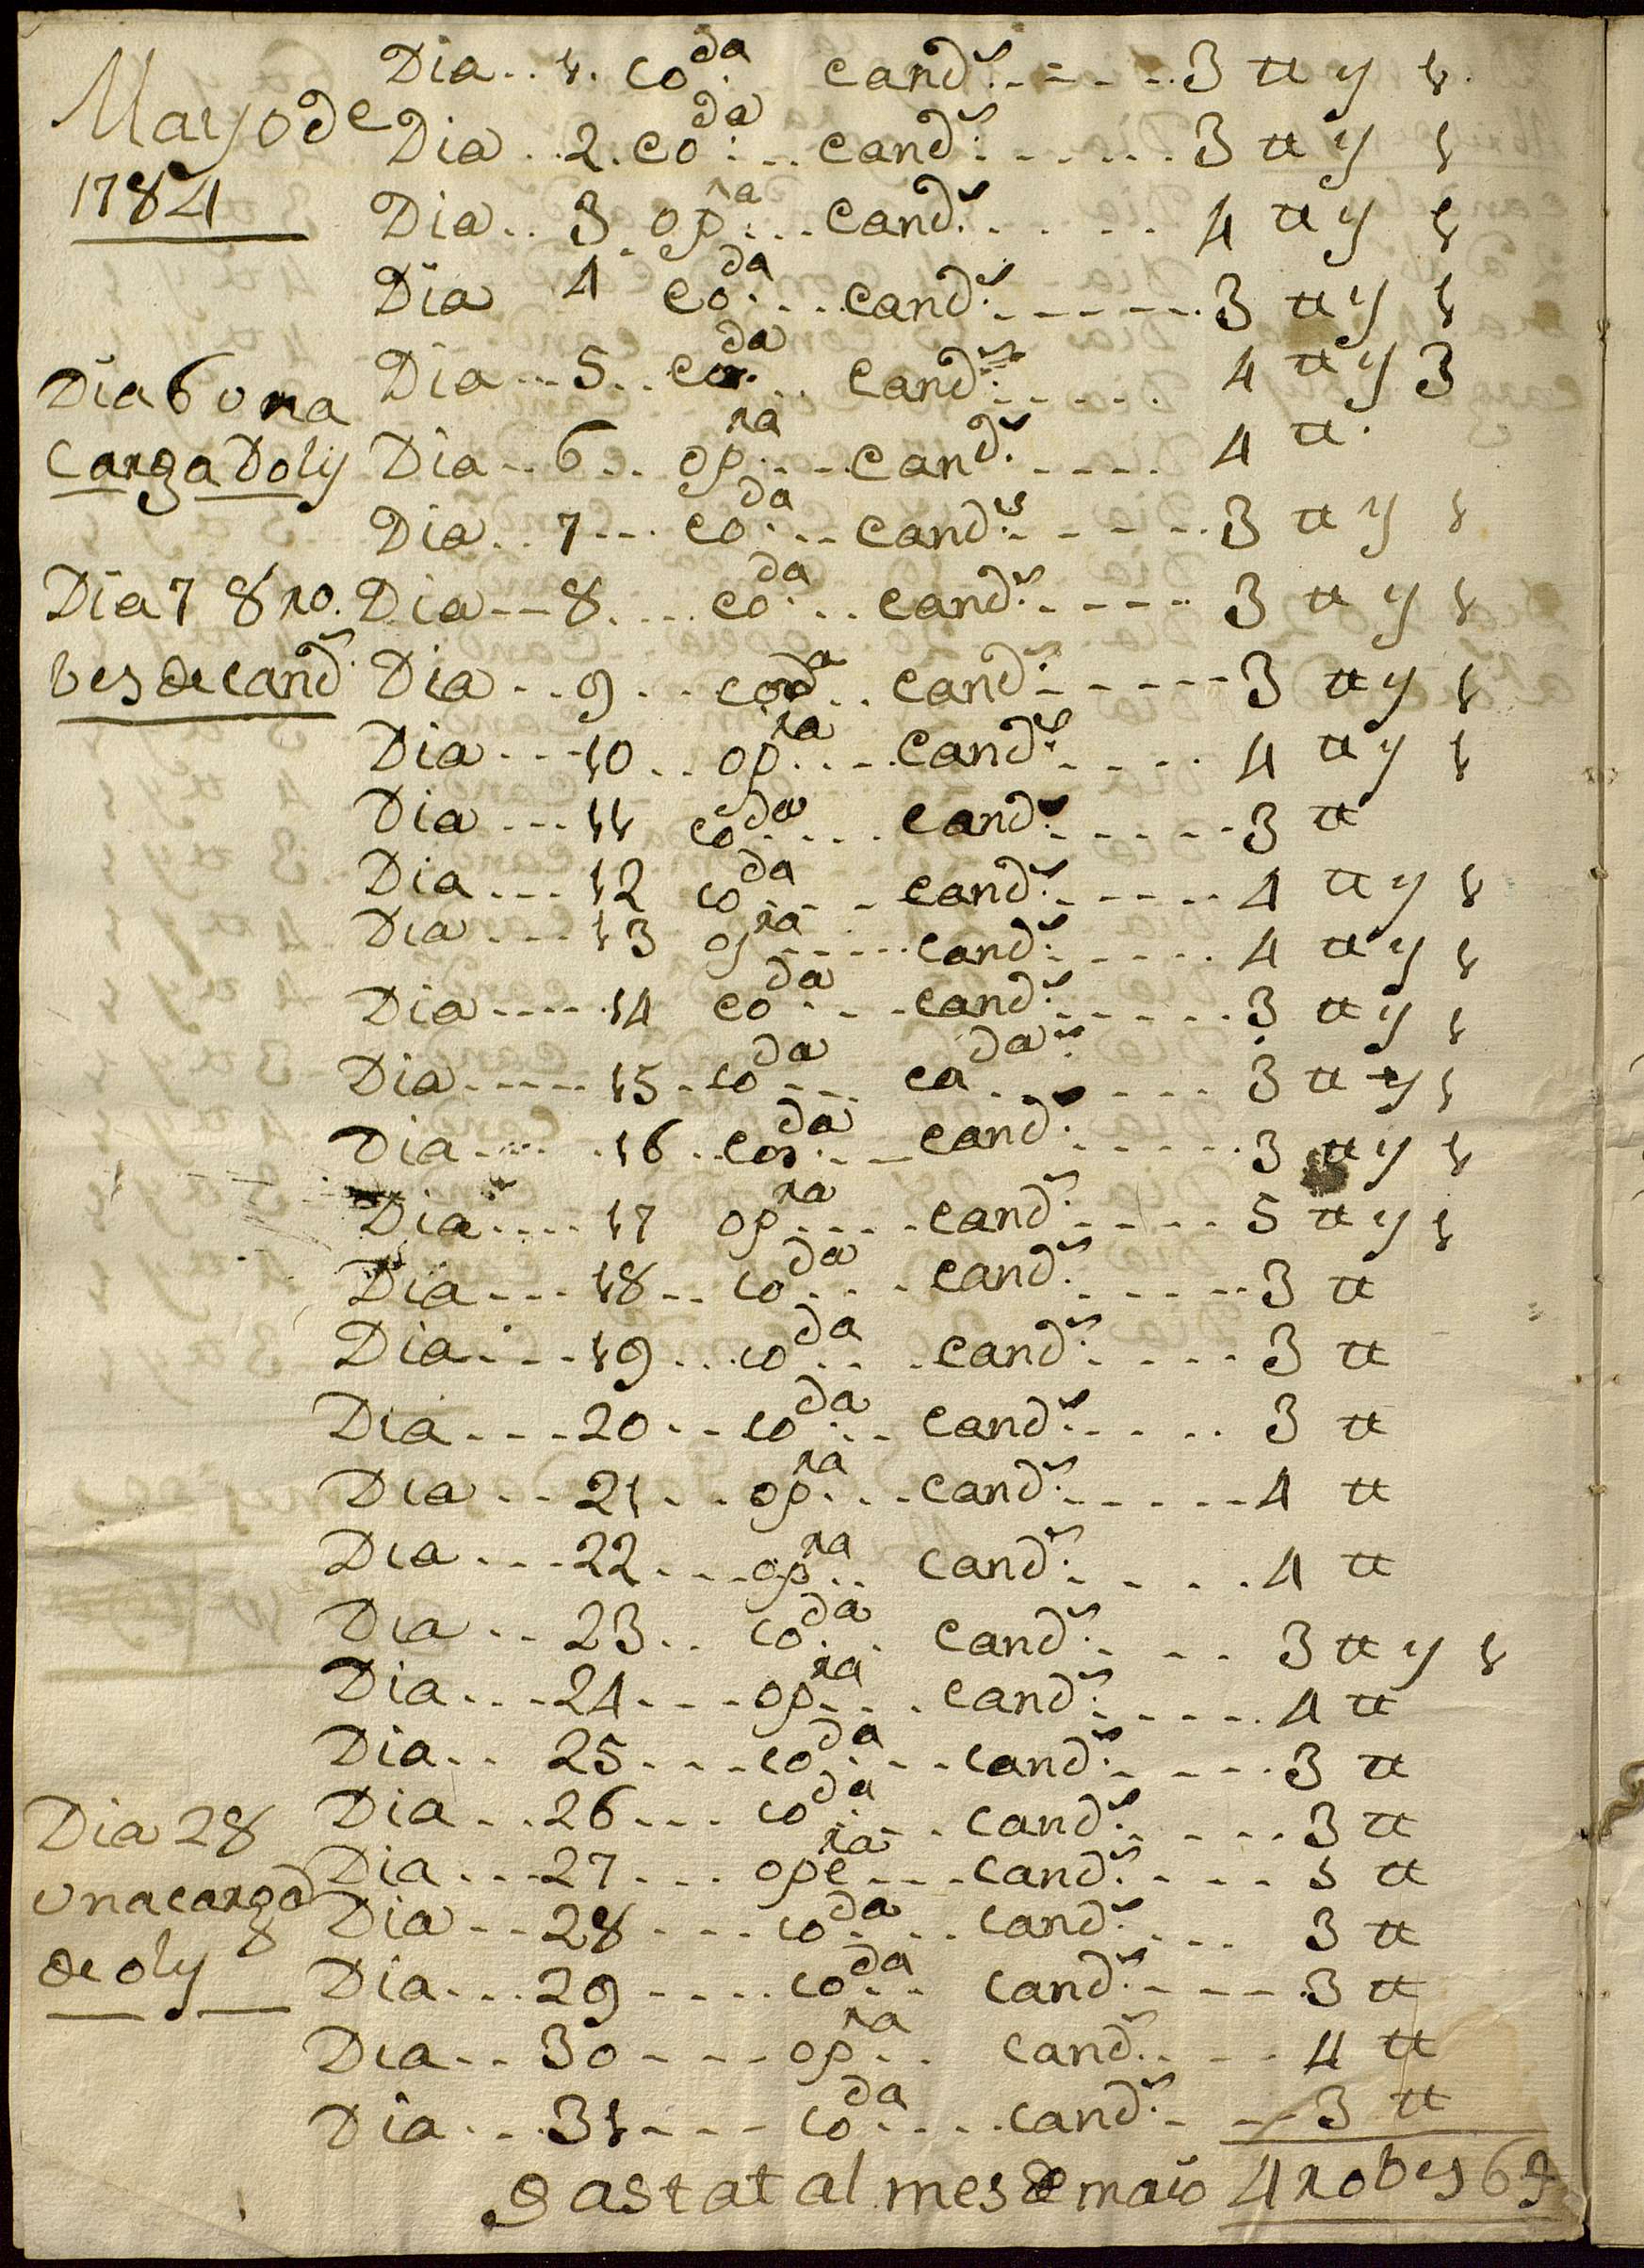 Mayo de
1784
Dia 6 una
carga Doly
Dia 7 8 ro.
bes de cand.s
Dia 28
una carga
de oly 8
Dia.. 1. co.da cand.s - - - - 3 tt y 1.
Dia.. 2. co.da.. cand.s - - - - 3 tt y 1
Dia.. 3 op.ra... cand.s . . . . 4 tt y 1
Dia 4 co.da... cand.s - - - - 3 tt y 1
Dia... 5.. co.da.. cand.s - - - - 4 tt y 3
Dia.. 6.. op.ra... cand.s - - - - 4 tt.
Dia.. 7... co.da.. cand.s - - - - 3 tt y 1
Dia-- 8.... co.da.. cand.s - - - - 3 tt y 1
Dia.. 9... coda.. cand.s - - - - 3 tt y 1
Dia... 10.. op.ra.... cand.s - - - - 4 tt y 1
Dia... 11 co.da.... cand.s - - - - 3 tt
Dia... 12 co.da... cand.s - - - - 4 tt y 1
Dia... 13 op.ra..... cand.s - - - - 4 tt y 1
Dia.... 14 co.da... cand.s - - - - 3 tt y 1
Dia..... 15. co.da... ca.das - - - - 3 tt y 1
Dia.... 16.. co.da.. cand.s - - - - 3 tt y 1
Dia.... 17 op.ra.... cand.s - - - - 5 tt y 1
Dia... 18.. co.da... cand.s - - - - 3 tt
Dia... 19... co.da... cand.s - - - - 3 tt
Dia... 20.. co.da.. cand.s - - - - 3 tt
Dia.. 21.. op.ra... cand.s - - - - 4 tt
Dia... 22... op.ra.. cand.s - - - - 4 tt
Dia.. 23.. co.da.. cand.s - - - 3 tt y 1
Dia... 24... op.ra... cand.s - - - - 4 tt
Dia.. 25... co.da... cand.s - - - - 3 tt
Dia... 26... co.da.. cand.s - - - - 3 tt
Dia... 27... opera... cand.s - - - 5 tt
Dia.. 28... co.da... cand.s - - - 3 tt
Dia... 29.... co.da.. cand.s - - - 3 tt
Dia.. 30.... op.ra.. cand.s - - - 4 tt
Dia... 31.... co.da.... cand.s - - - 3 tt
gastat al mes de maio 4 robes 6 g